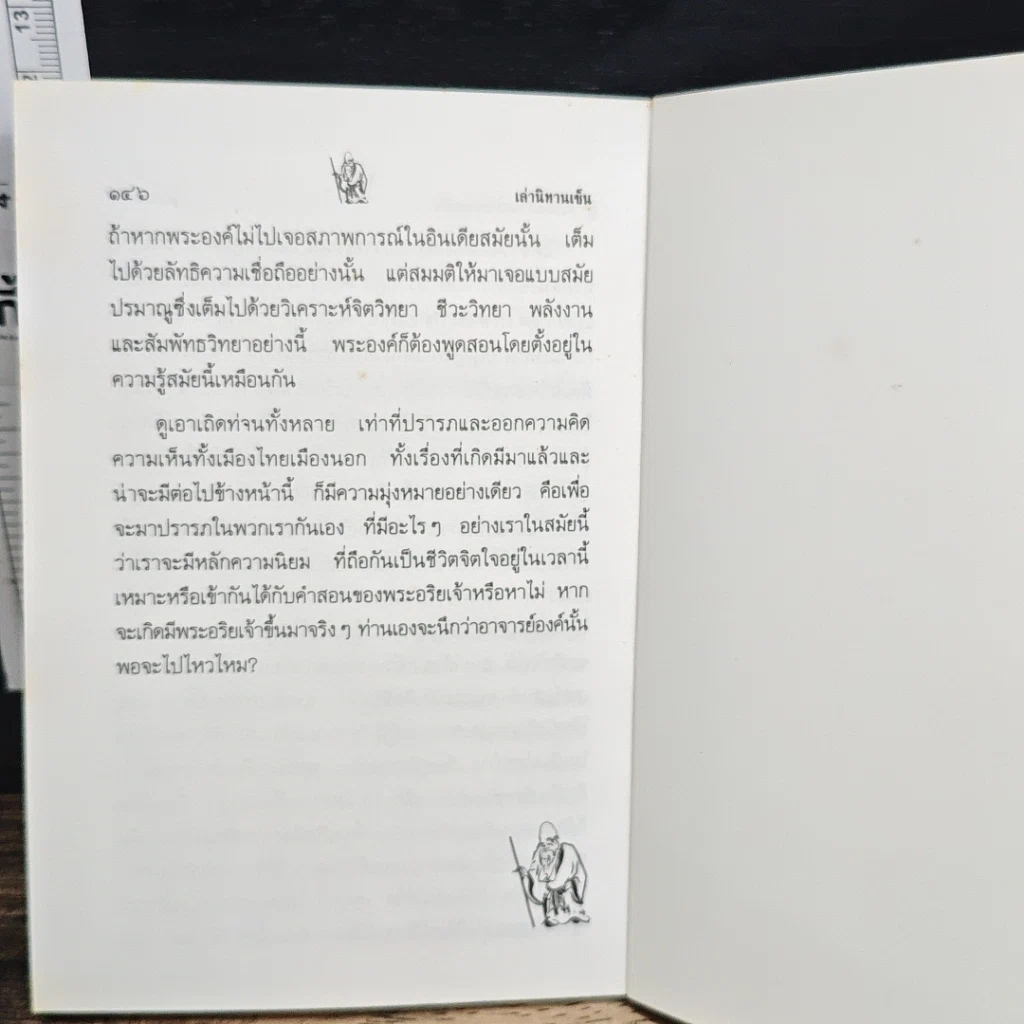 13
๑๔๖
เล่านิทานเซ็น
ถ้าหากพระองค์ไม่ไปเจอสภาพการณ์ในอินเดียสมัยนั้น เต็ม
ไปด้วยลัทธิความเชื่อถืออย่างนั้น แต่สมมติให้มาเจอแบบสมัย
ปรมาณูซึ่งเต็มไปด้วยวิเคราะห์จิตวิทยา ชีวะวิทยา พลังงาน
และสัมพัทธวิทยาอย่างนี้ พระองค์ก็ต้องพูดสอนโดยตั้งอยู่ใน
ความรู้สมัยนี้เหมือนกัน
ดูเอาเถิดท่จนทั้งหลาย เท่าที่ปรารภและออกความคิด
ความเห็นทั้งเมืองไทยเมืองนอก ทั้งเรื่องที่เกิดมีมาแล้วและ
น่าจะมีต่อไปข้างหน้านี้ ก็มีความมุ่งหมายอย่างเดียว คือเพื่อ
จะมาปรารภในพวกเรากันเอง ที่มีอะไรๆ อย่างเราในสมัยนี้
ว่าเราจะมีหลักความนิยม ที่ถือกันเป็นชีวิตจิตใจอยู่ในเวลานี้
เหมาะหรือเข้ากันได้กับคำสอนของพระอริยเจ้าหรือหาไม่ หาก
จะเกิดมีพระอริยเจ้าขึ้นมาจริงๆ ท่านเองจะนึกว่าอาจารย์องค์นั้น
พอจะไปไหวไหม?